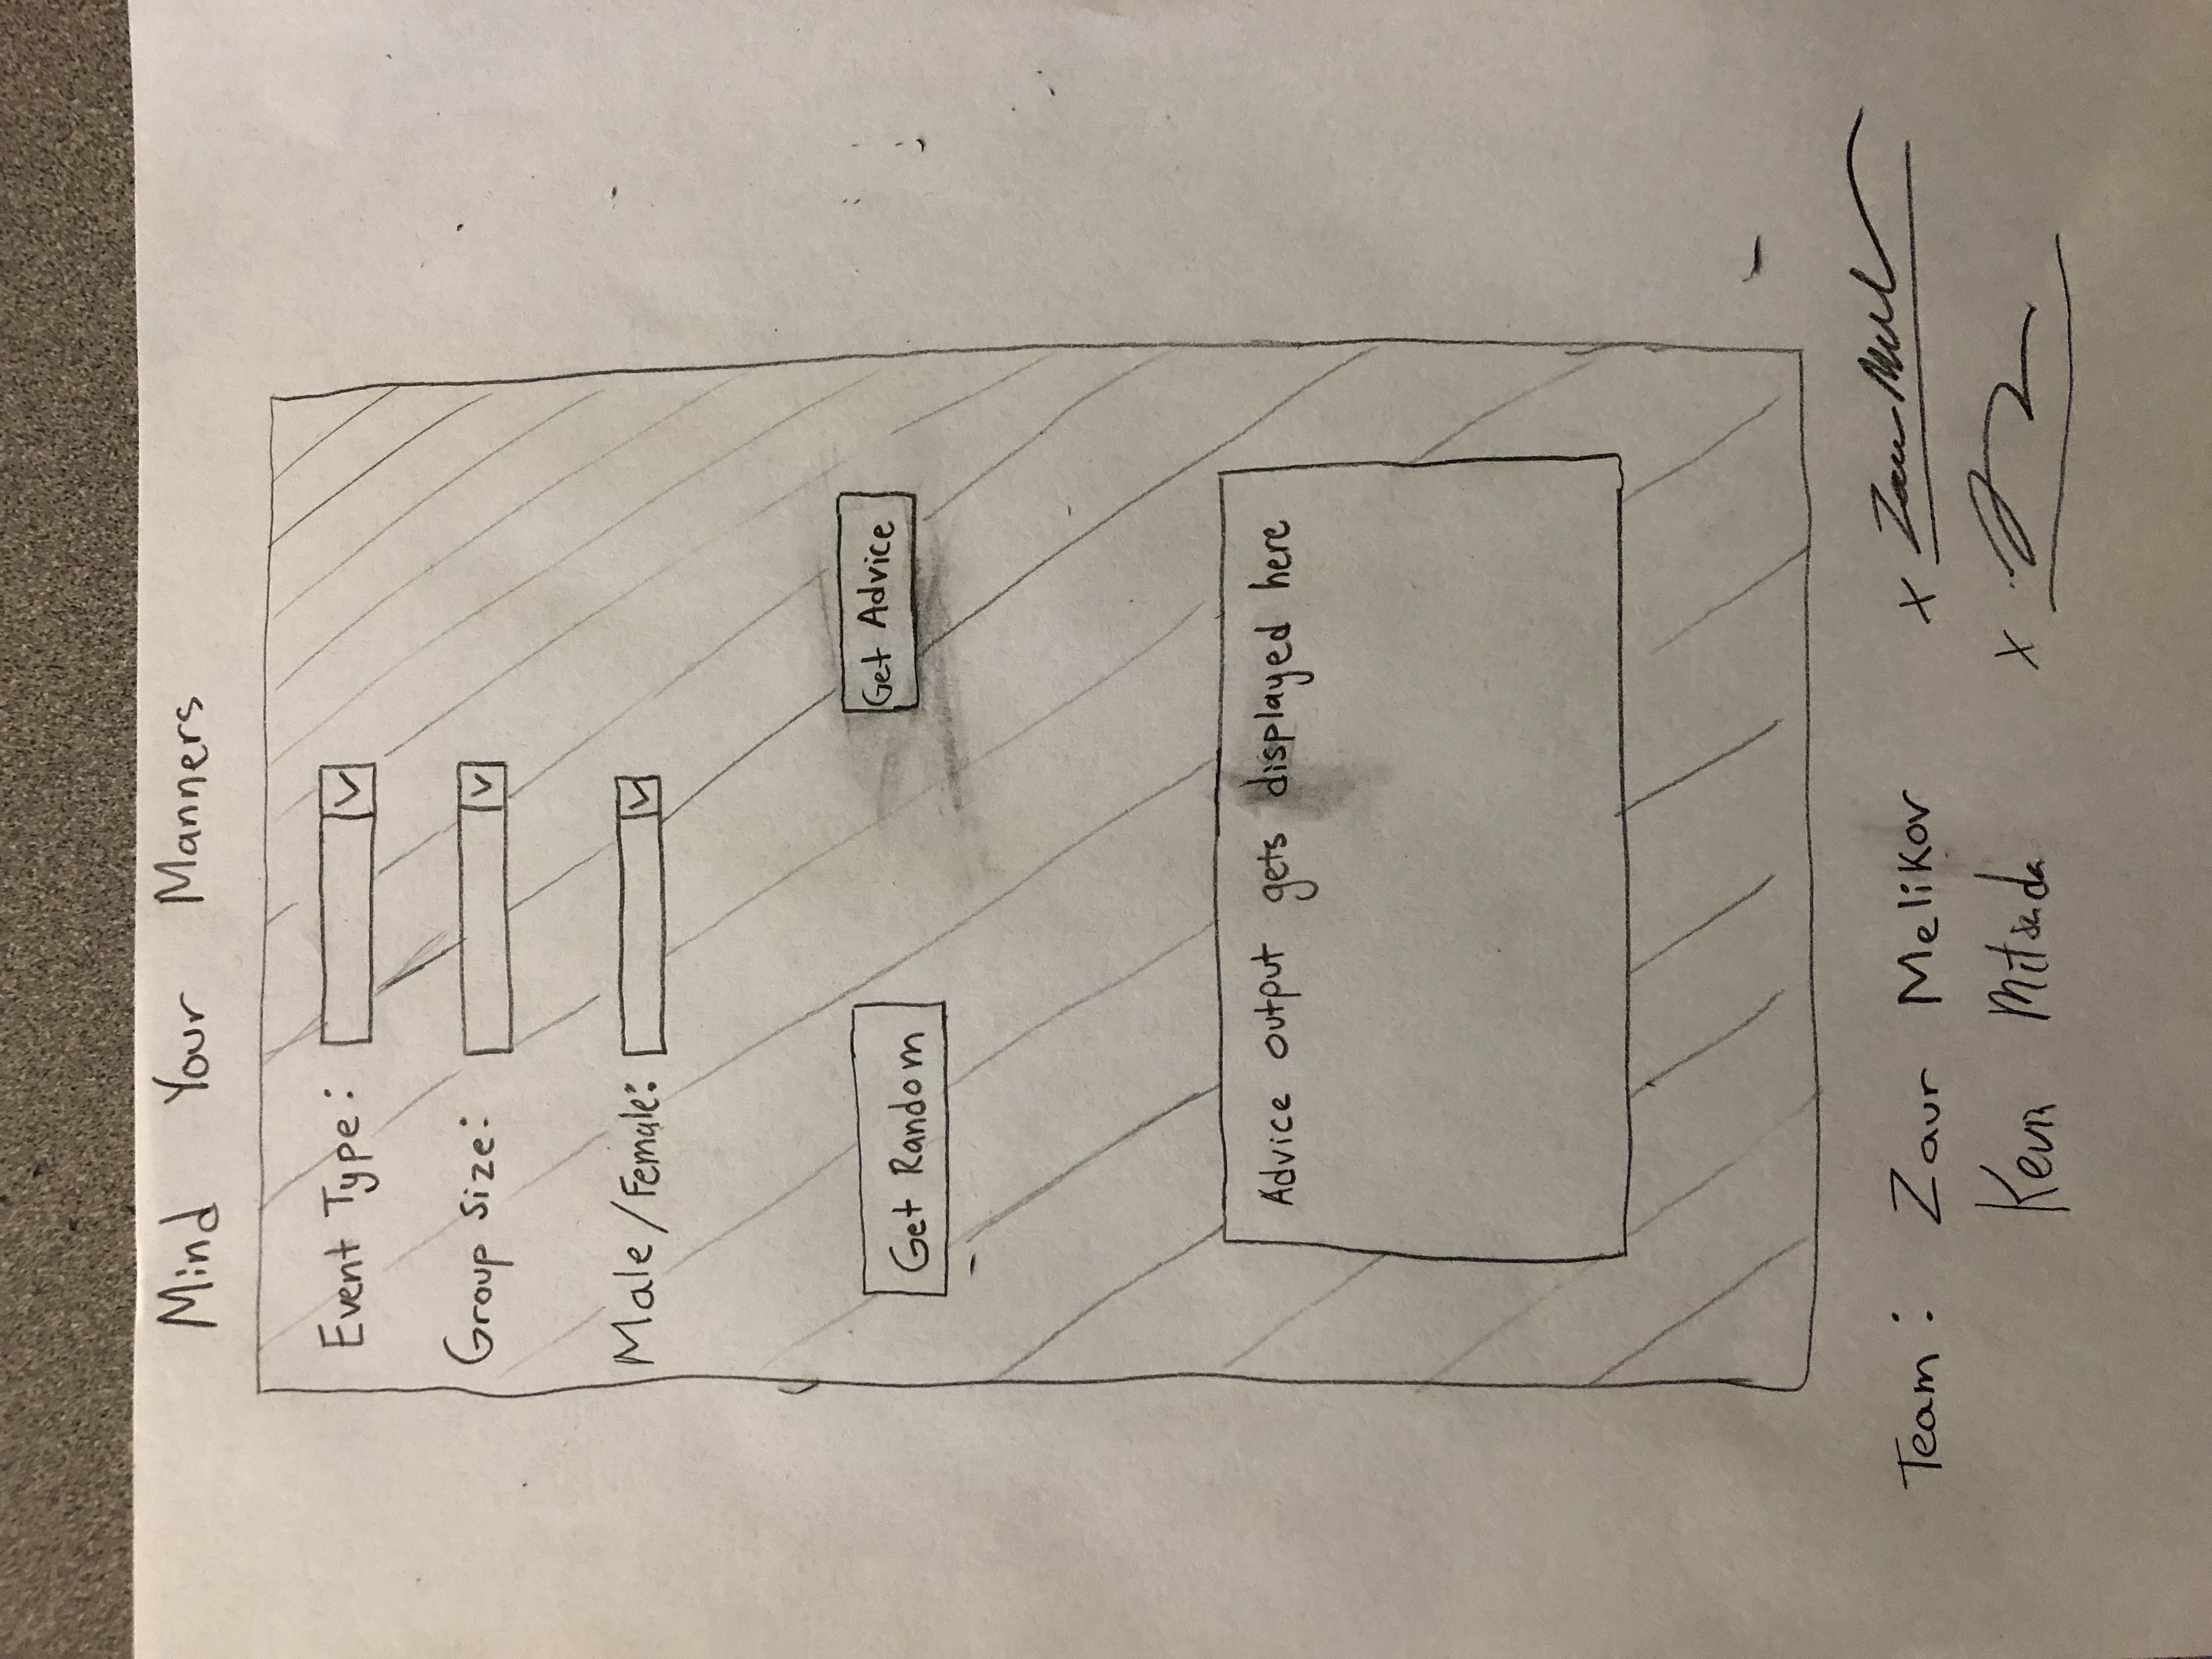 Mind Your Manners
Event Type:
Group Size:
Male/Female:
Get Random
Get Advice
Advice output gets displayed here
Team: Zaur Melikov x
Kevin Mitsuda x